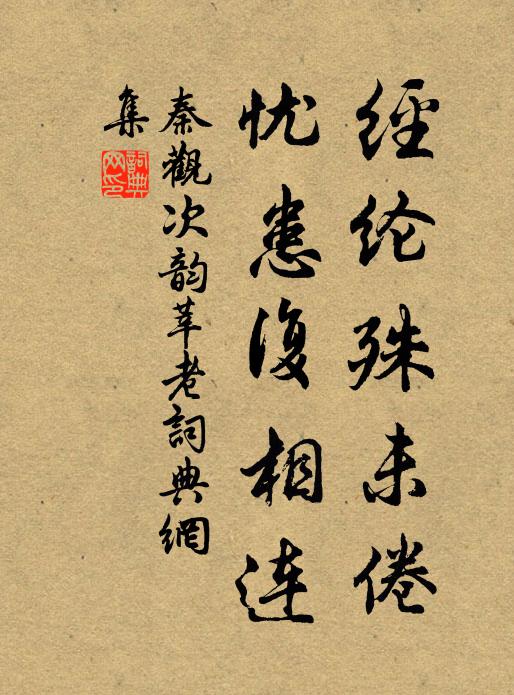 經纶殊未倦
忧患復相连
秦觀次韵莘老詞典網
集
詞典
网印